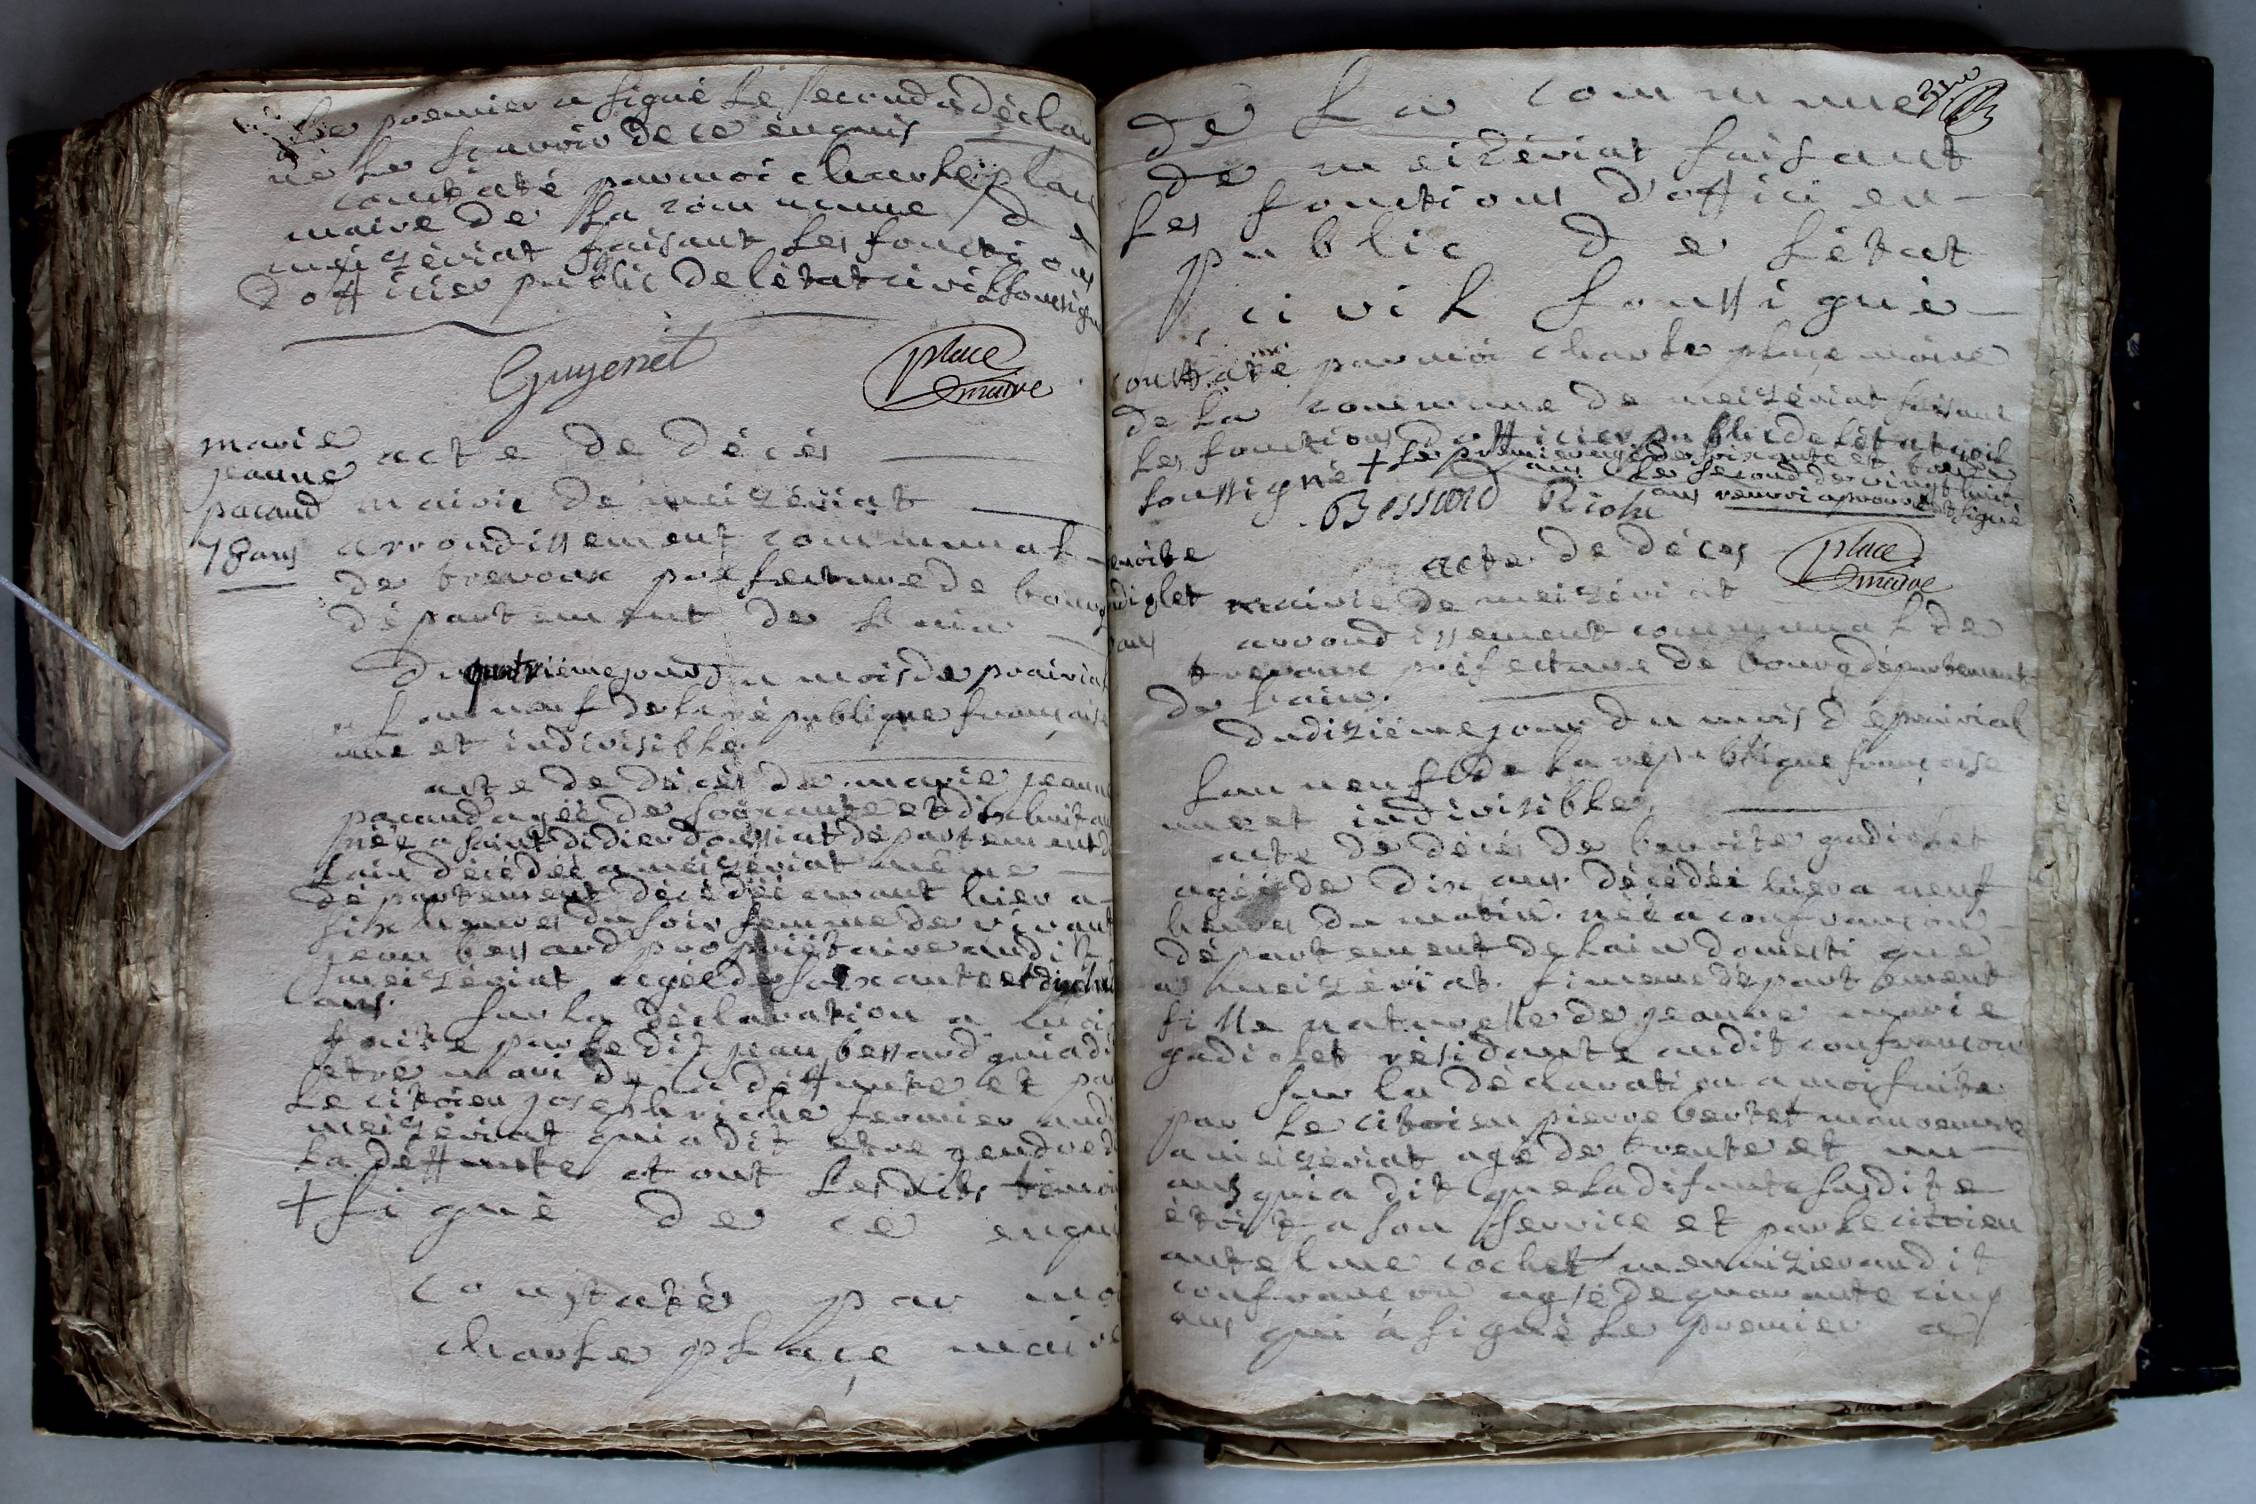 le premier a signé le second a déclar
né le scavoir de ce enquis
constaté par moi charle plac
maire de la commune de
meizériat faisant les fonctions
d'officier public de létat civil soussigné
Guyenet
place maire
marie
jeanne
pacaud
78 ans
acte de décés
mairie de meizériat
arrondissement communal
de trevoux préfecture de bourg
département de lain
du jour du mois de prairial
lan neuf de la république française
une et indivisible
acte de décés de marie jeanne
pacaud agée de soixante et dix huit ans
née a saint didier doussiat département de
lain décédée a meizériat même
département décédée avant hier a
six heures du soir femme de vivant
jean bessard propriétaire audit
meizériat agé de soixante et dix huit
ans. sur la déclaration a moi
faite par le dit jean bessard qui a dit
etre mari de la déffunte et par
le citoien joseph riche fermier audit
meizériat qui a dit etre gendre de
la déffunte et ont lesdits témoins
+ signé de ce enquis
constaté par moi
charle plaçe maire
de la commune
de meizériat faisant
les fonctions d'officier
public de létat
civil soussigné
constaté par moi charle plaçe maire
de la commune de meizériat faisant
les fonctions d'officier public de létat civil
soussigné + le premier agé de soixante et
ans le second de vingt huit
ans renvoi aprouvé et signé
Bessard Riche
place maire
benoite
gadiolet
ans
acte de décés
mairie de meizériat
arrondissement communal de
trevoux préfecture de bourg département
de lain.
du dizième jour du mois de prairial
lan neuf de la république française
une et indivisible
acte de décés de benoite gadiolet
agée de dix ans. décédée hier a neuf
heures du matin. née a confrançon
département de lain domestique
a meizériat. même département
fille naturelle de jeanne marie
gadiolet résidante audit confrançon
sur la déclaration a moi faite
par le citoien pierre bertet manoeuvre
a meizériat agé de trente et un
ans qui a dit que la difunte susdite
étoit a son service et par le citoien
antelme cochet menuizier audit
confrancon agé de quarante cinq
ans qui a signé le premier a